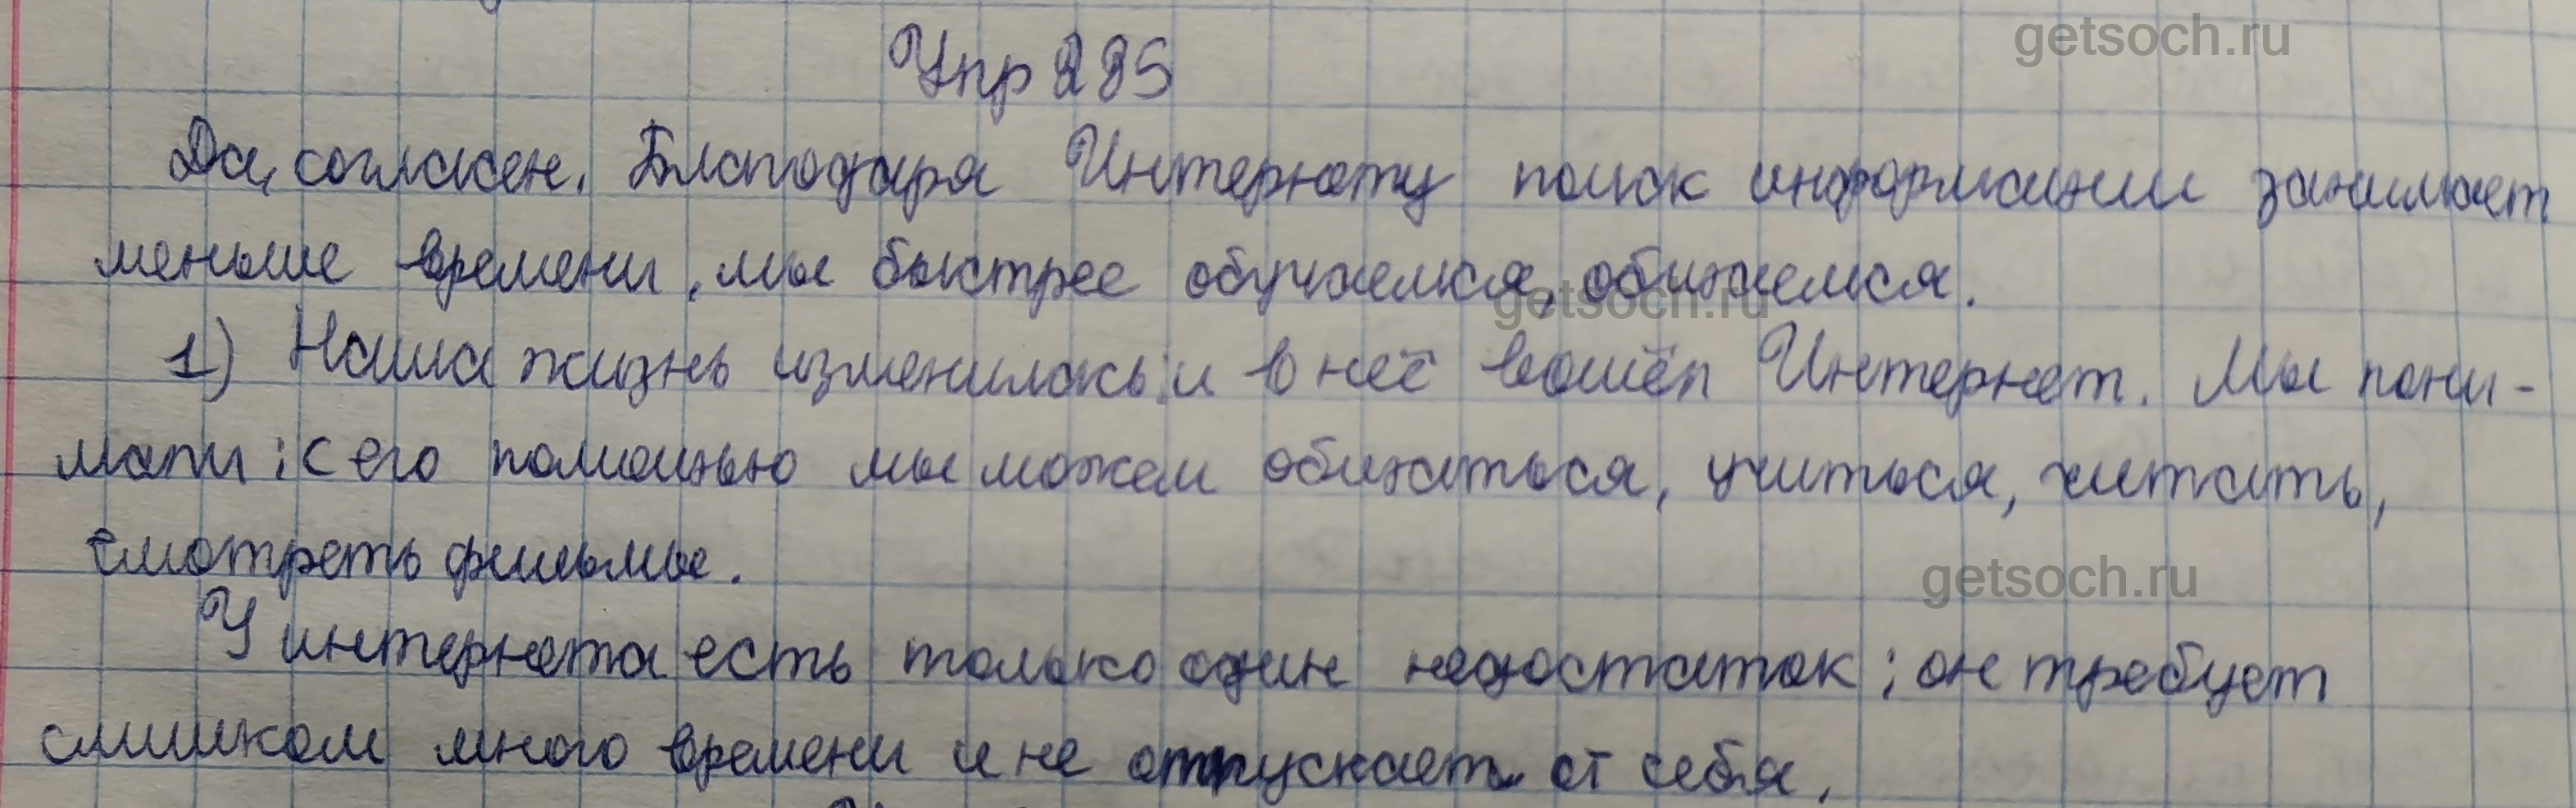 getsoch.ru
Упр 285
Да, согласен. Благодаря Интернету поиск информации занимает
меньше времени, мы быстрее обучаемся, общаемся.
getsoch.ru
1) Наша жизнь изменилась: и в неё вошёл Интернет. Мы пони-
мали: с его помощью мы можем общаться, учиться, читать,
смотреть фильмы.
getsoch.ru
У интернета есть только один недостаток: он требует
слишком много времени и не отпускает от себя.